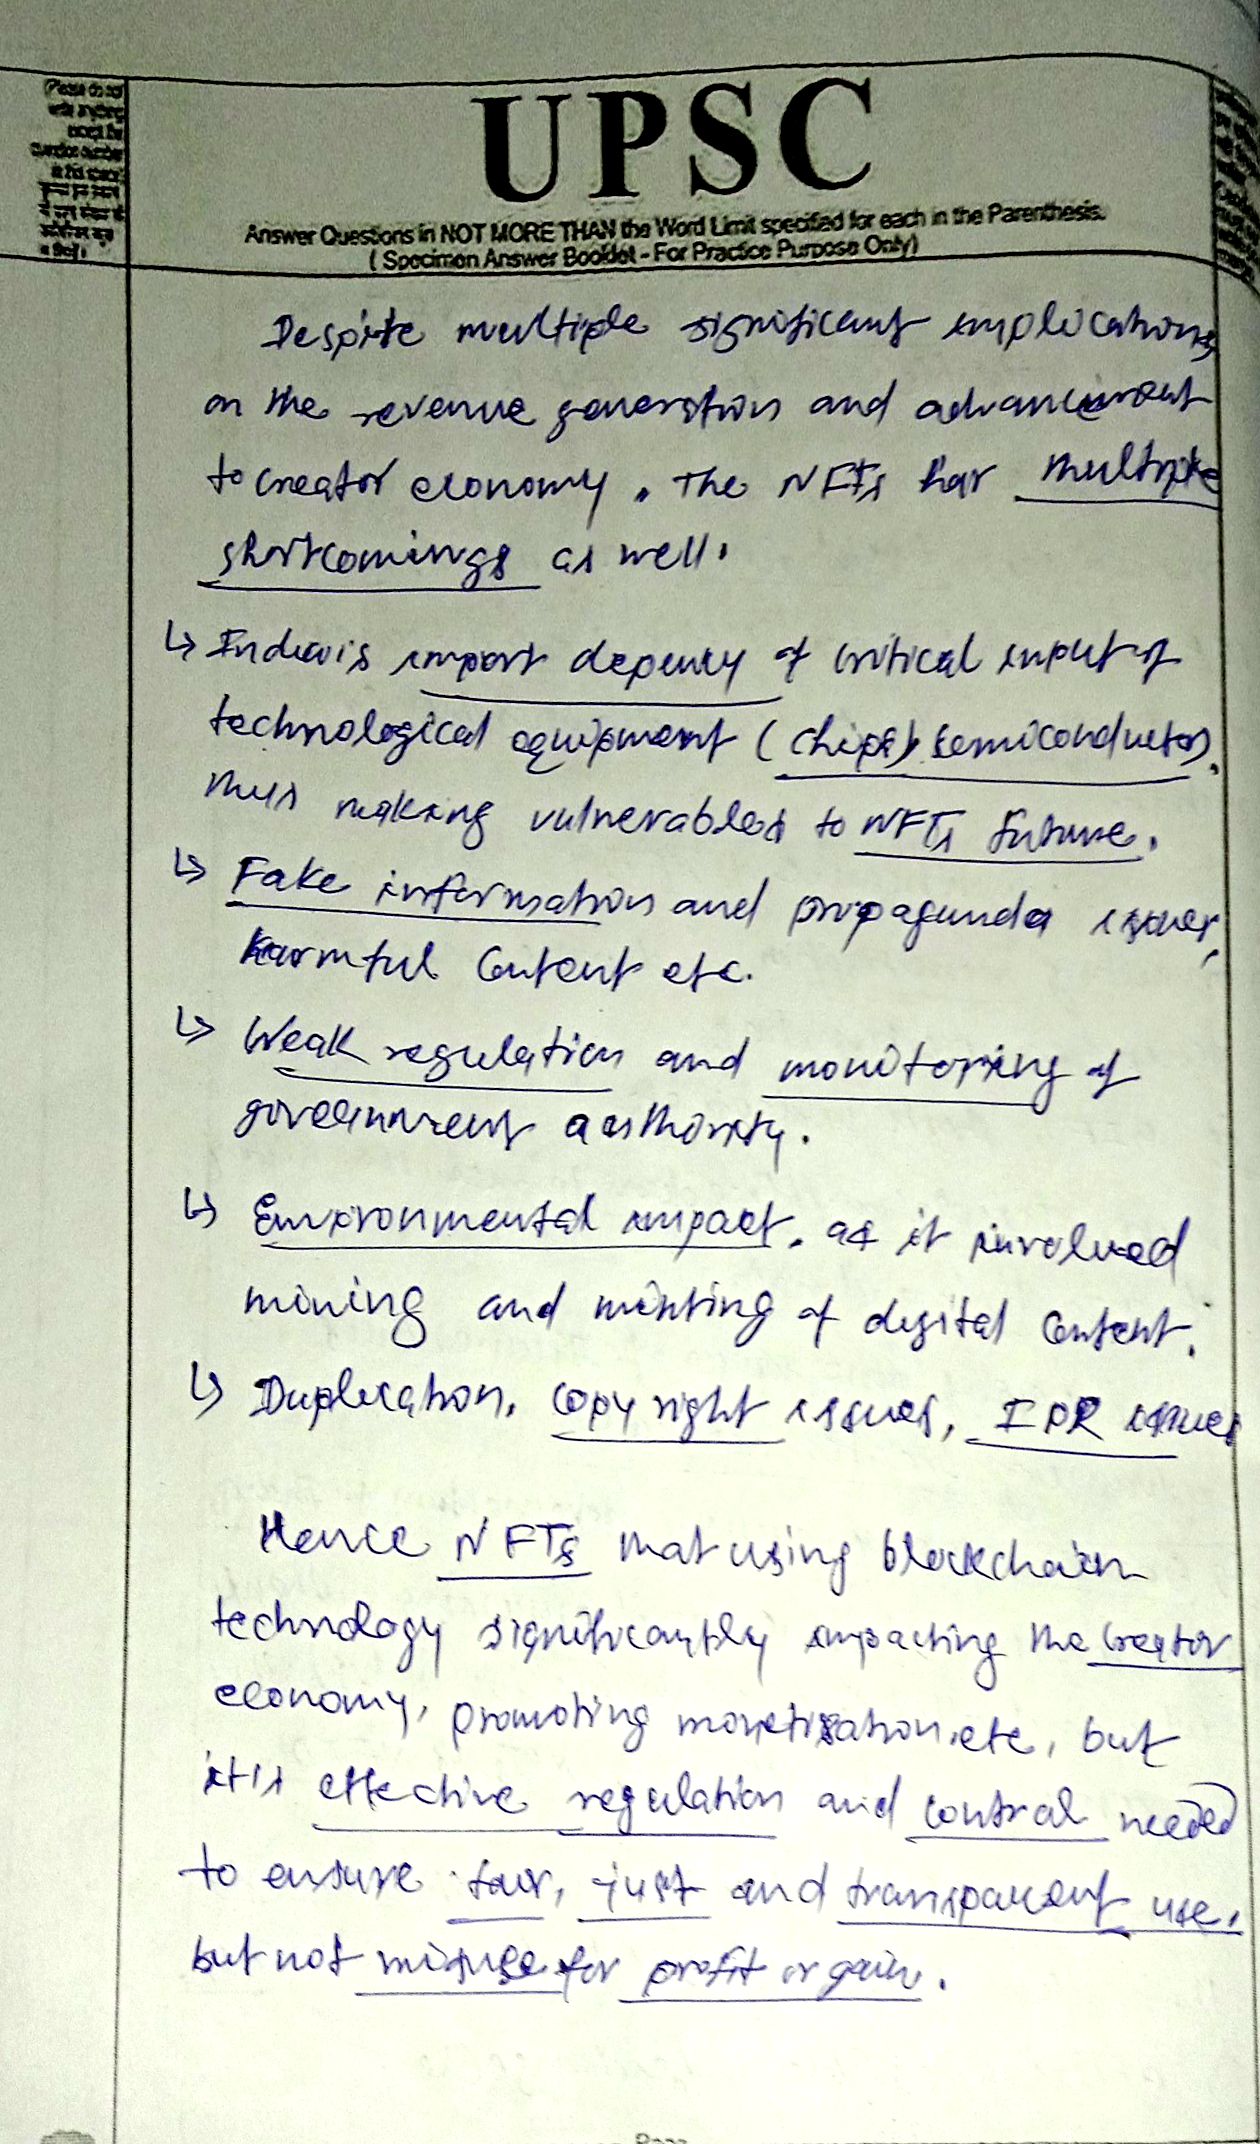 (Please do not
write anything
except the
question number
in this space)
UPSC
Answer Questions in NOT MORE THAN the Word Limit specified for each in the Parenthesis.
( Specimen Answer Booklet - For Practice Purpose Only)
Despite multiple significant implications
on the revenue generation and advancement
to creator economy. The NFTs has multiple
shortcomings as well.
↳ India's import depency of critical input of
technological equipment (chips) semiconductors,
thus making vulnerables to NFTs future.
↳ Fake information and propaganda issues,
harmful content etc.
↳ Weak regulation and monitoring of
government authority.
↳ Environmental impact, as it involved
mining and minting of digital content.
↳ Duplication, copy right issues, IPR issues
Hence NFTs that using blockchain
technology significantly impacting the creator
economy, promoting monetisation, etc, but
it is effective regulation and control needed
to ensure fair, just and transparent use,
but not misuse for profit or gain.